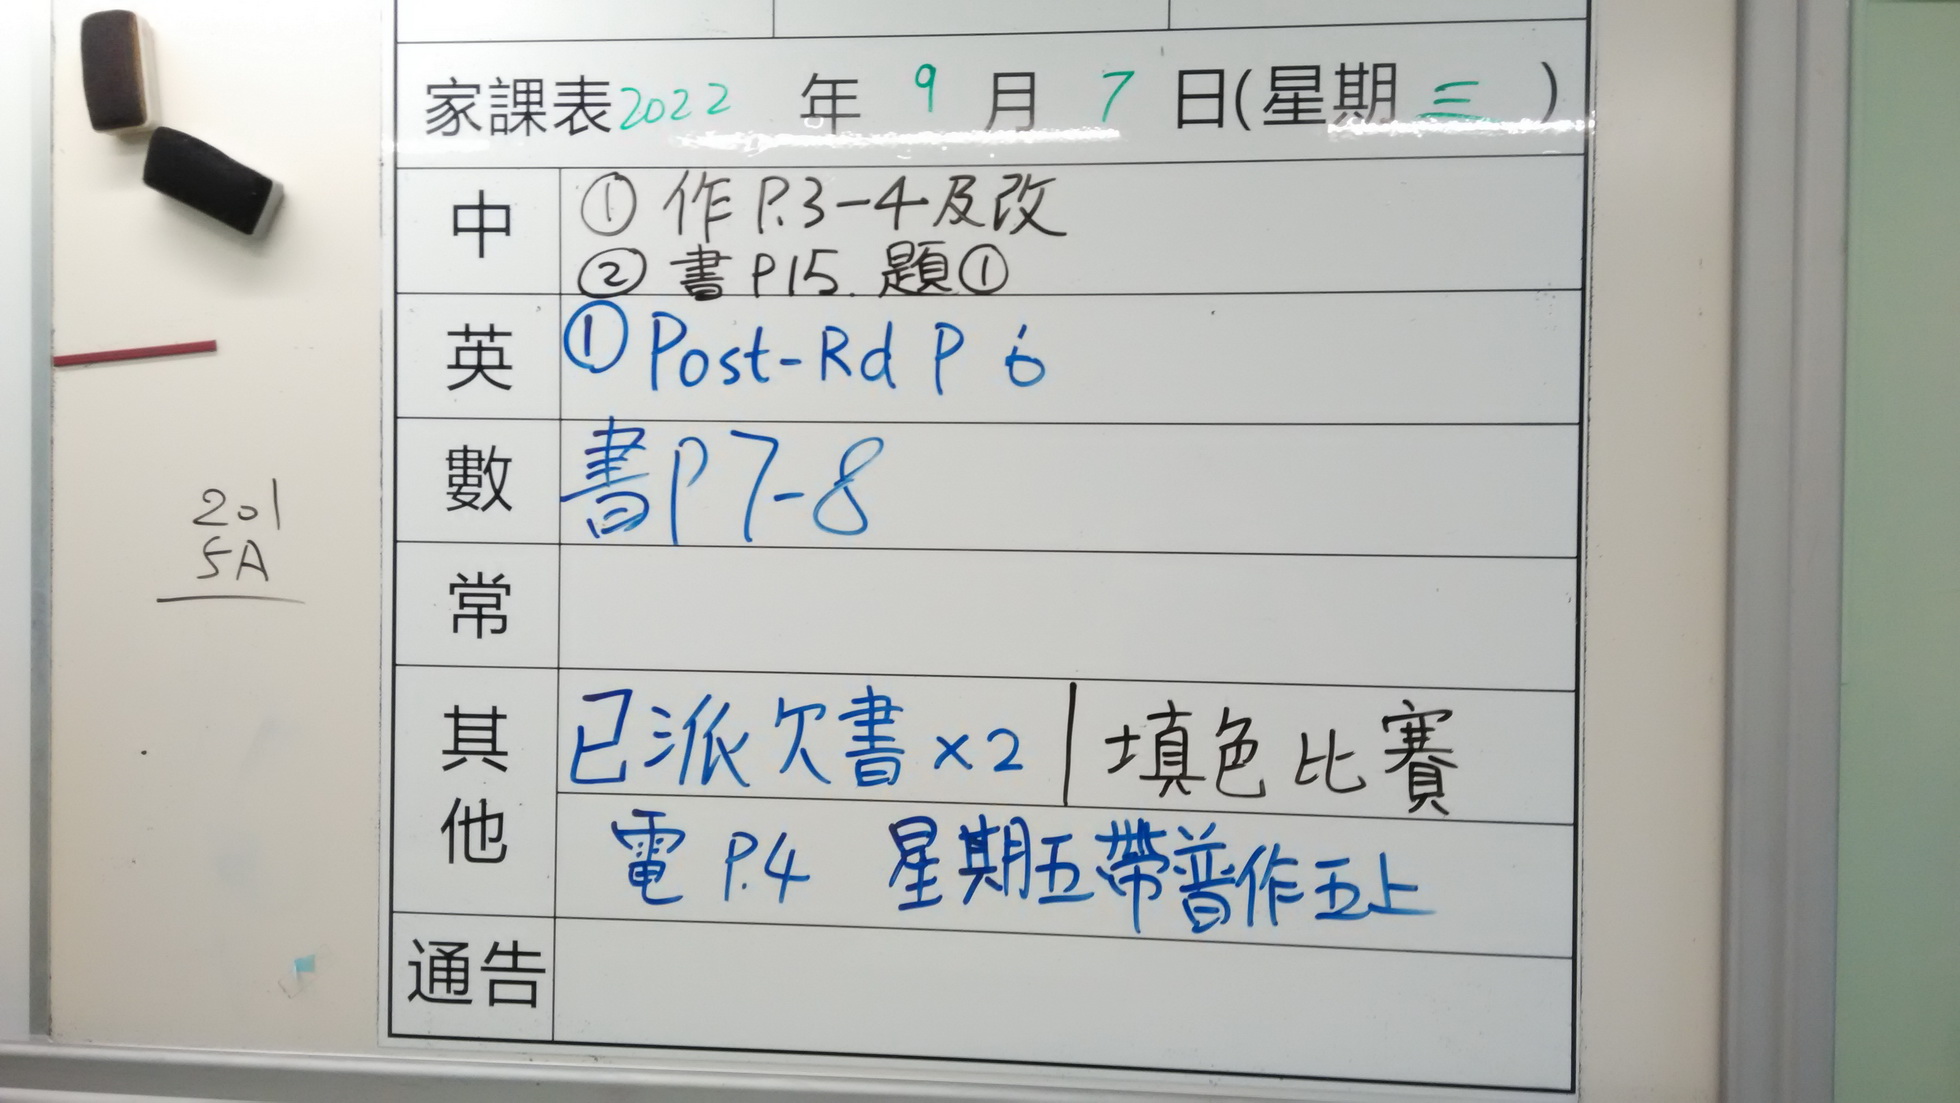 家課表2022 年 9 月 7 日(星期 三 )
中
① 作 P.3-4及改
② 書 P15. 題①
英
① Post-Rd P 6
數
書P 7-8
常
其他
已派欠書×2 | 填色比賽
電 P.4 星期五帶普作五上
通告
201
5A